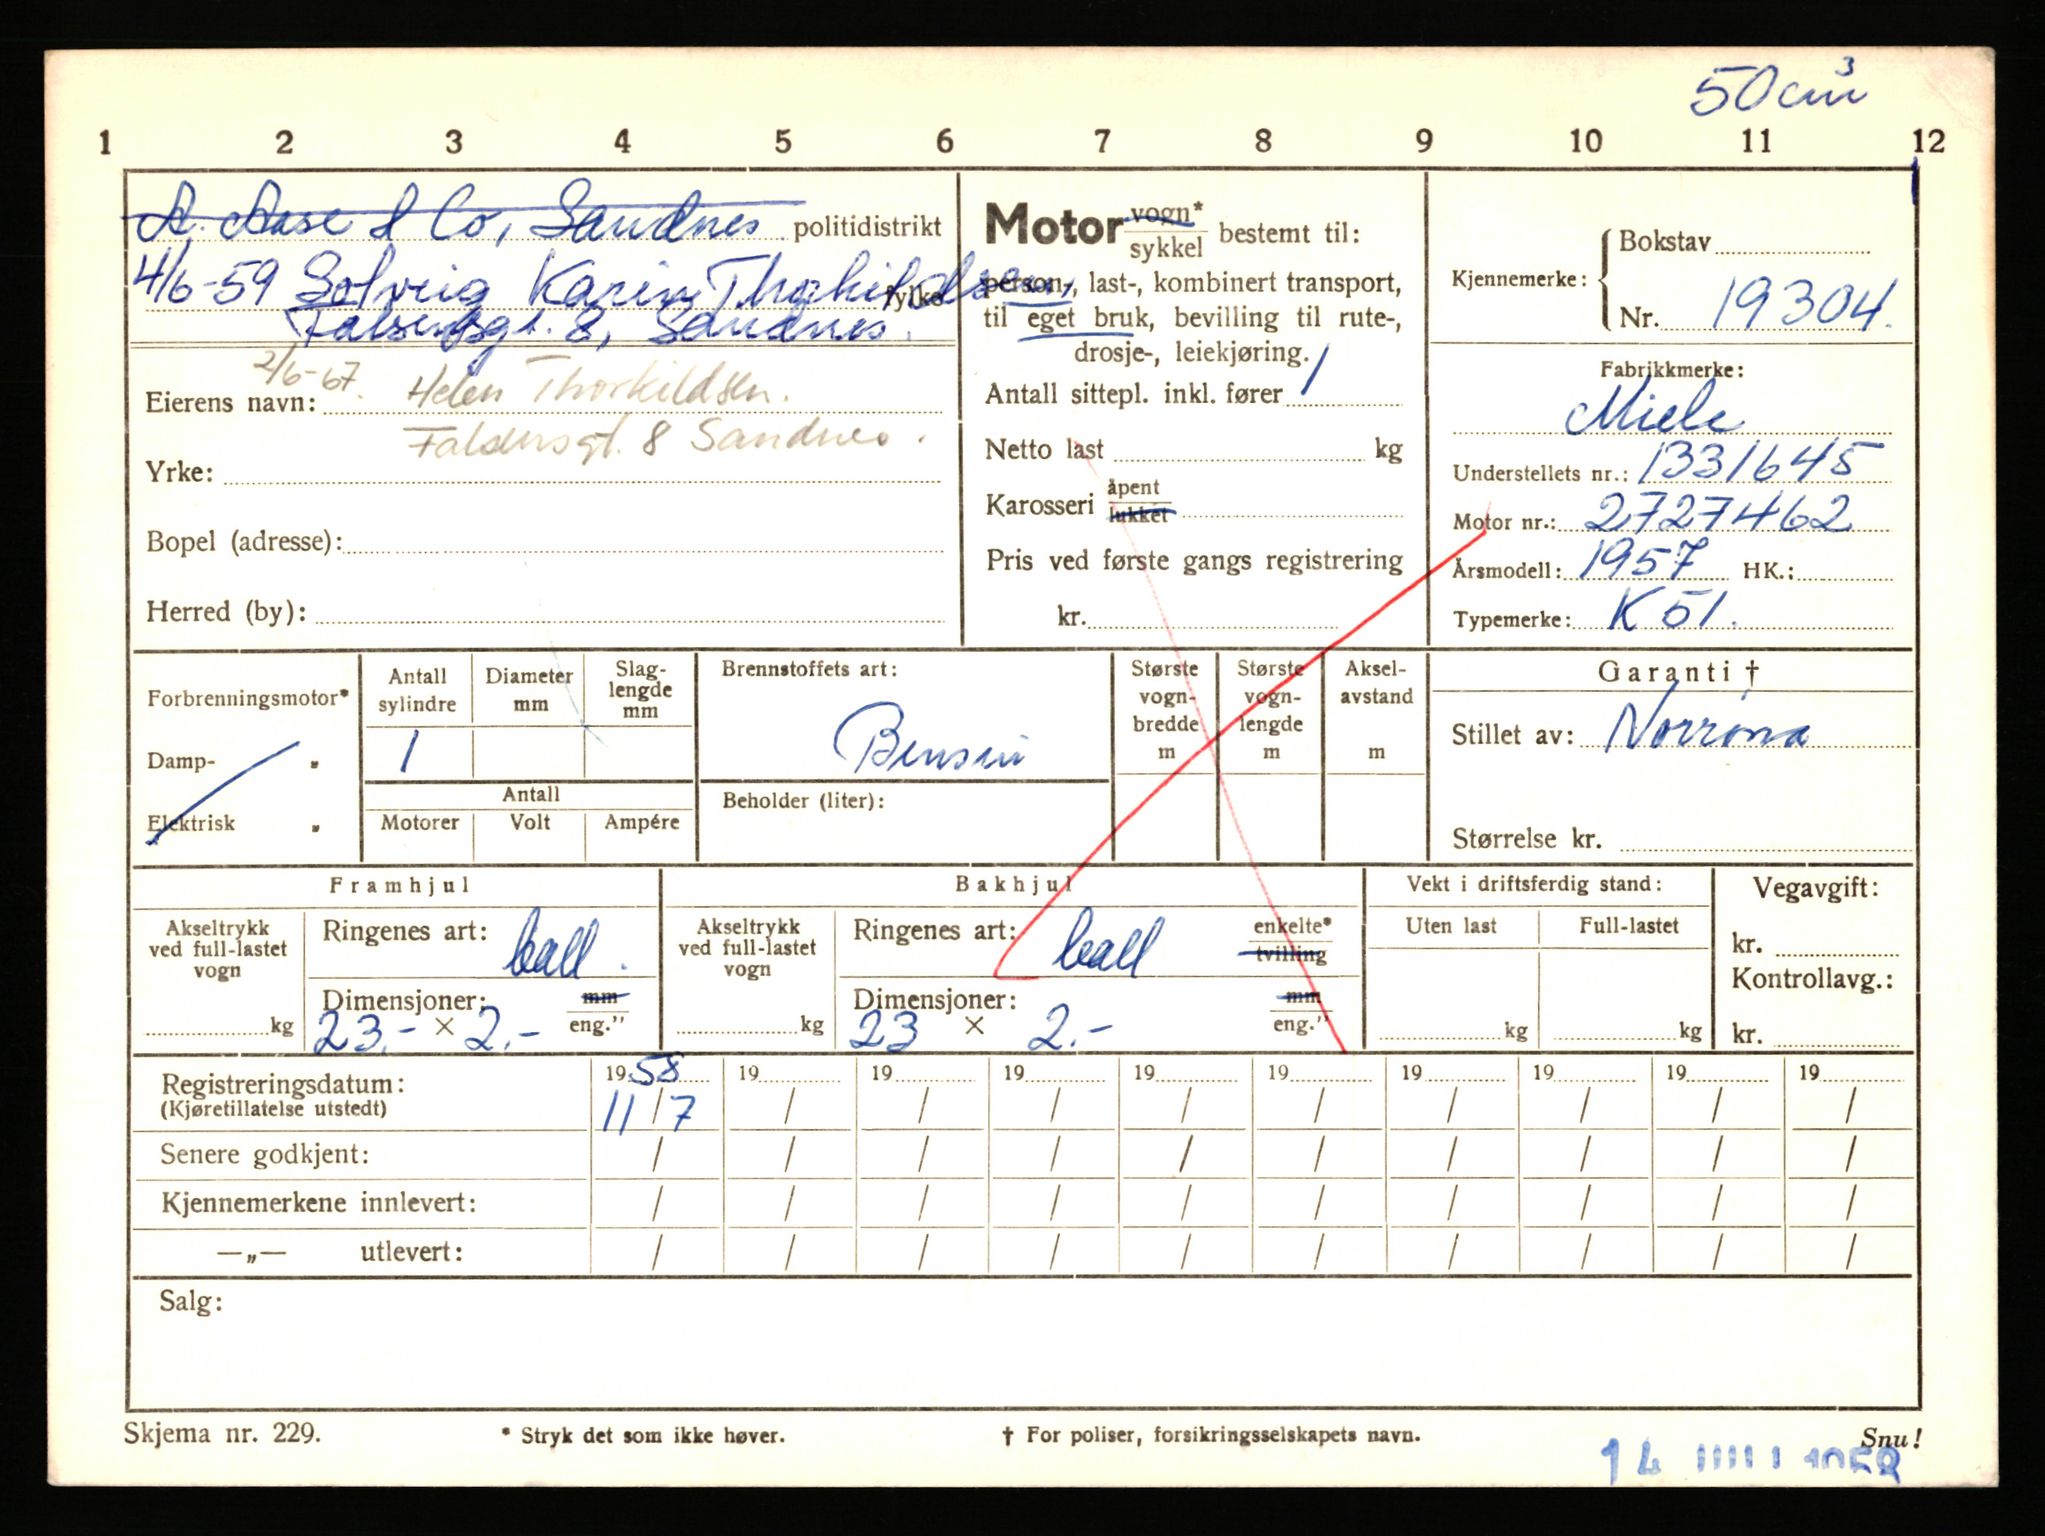 50 cm³
1 2 3 4 5 6 7 8 9 10 11 12
A. Aase & Co, Sandnes politidistrikt
4/6-59 Solveig Karin Thorkildsen, fylke
Faldsensgt. 8, Sandnes.
2/6-67. Helen Thorkildsen.
Eierens navn:
Faldensgt. 8 Sandnes.
Yrke:
Bopel (adresse):
Herred (by):
Motor vogn* sykkel bestemt til:
person-, last-, kombinert transport,
til eget bruk, bevilling til rute-,
drosje-, leiekjøring.
Antall sittepl. inkl. fører 1
Netto last kg
Karosseri åpent lukket
Pris ved første gangs registrering
kr.
Kjennemerke: Bokstav
Nr. 19304.
Fabrikkmerke:
Miele
Understellets nr.: 1331645
Motor nr.: 2727462
Årsmodell: 1957 HK.:
Typemerke: K 51.
Forbrenningsmotor*
Damp- „
Elektrisk „
Antall sylindre
Diameter mm
Slag-lengde mm
1
Antall
Motorer Volt Ampére
Brennstoffets art:
Bensin
Beholder (liter):
Største vogn-bredde m
Største vogn-lengde m
Aksel-avstand m
Garanti †
Stillet av: Norrøna
Størrelse kr.
Framhjul
Akseltrykk ved full-lastet vogn
kg
Ringenes art: ball.
Dimensjoner: mm
23.- × 2.- eng.”
Bakhjul
Akseltrykk ved full-lastet vogn
kg
Ringenes art: ball enkelte* tvilling
Dimensjoner: mm
23 × 2.- eng.”
Vekt i driftsferdig stand:
Uten last Full-lastet
kg kg
Vegavgift:
kr.
Kontrollavg.:
kr.
Registreringsdatum: 1958 19 19 19 19 19 19 19 19 19
(Kjøretillatelse utstedt) 11/7 / / / / / / / / /
Senere godkjent: / / / / / / / / / /
Kjennemerkene innlevert: / / / / / / / / / /
—„— utlevert: / / / / / / / / / /
Salg:
Skjema nr. 229. * Stryk det som ikke høver. † For poliser, forsikringsselskapets navn. Snu!
14 1958